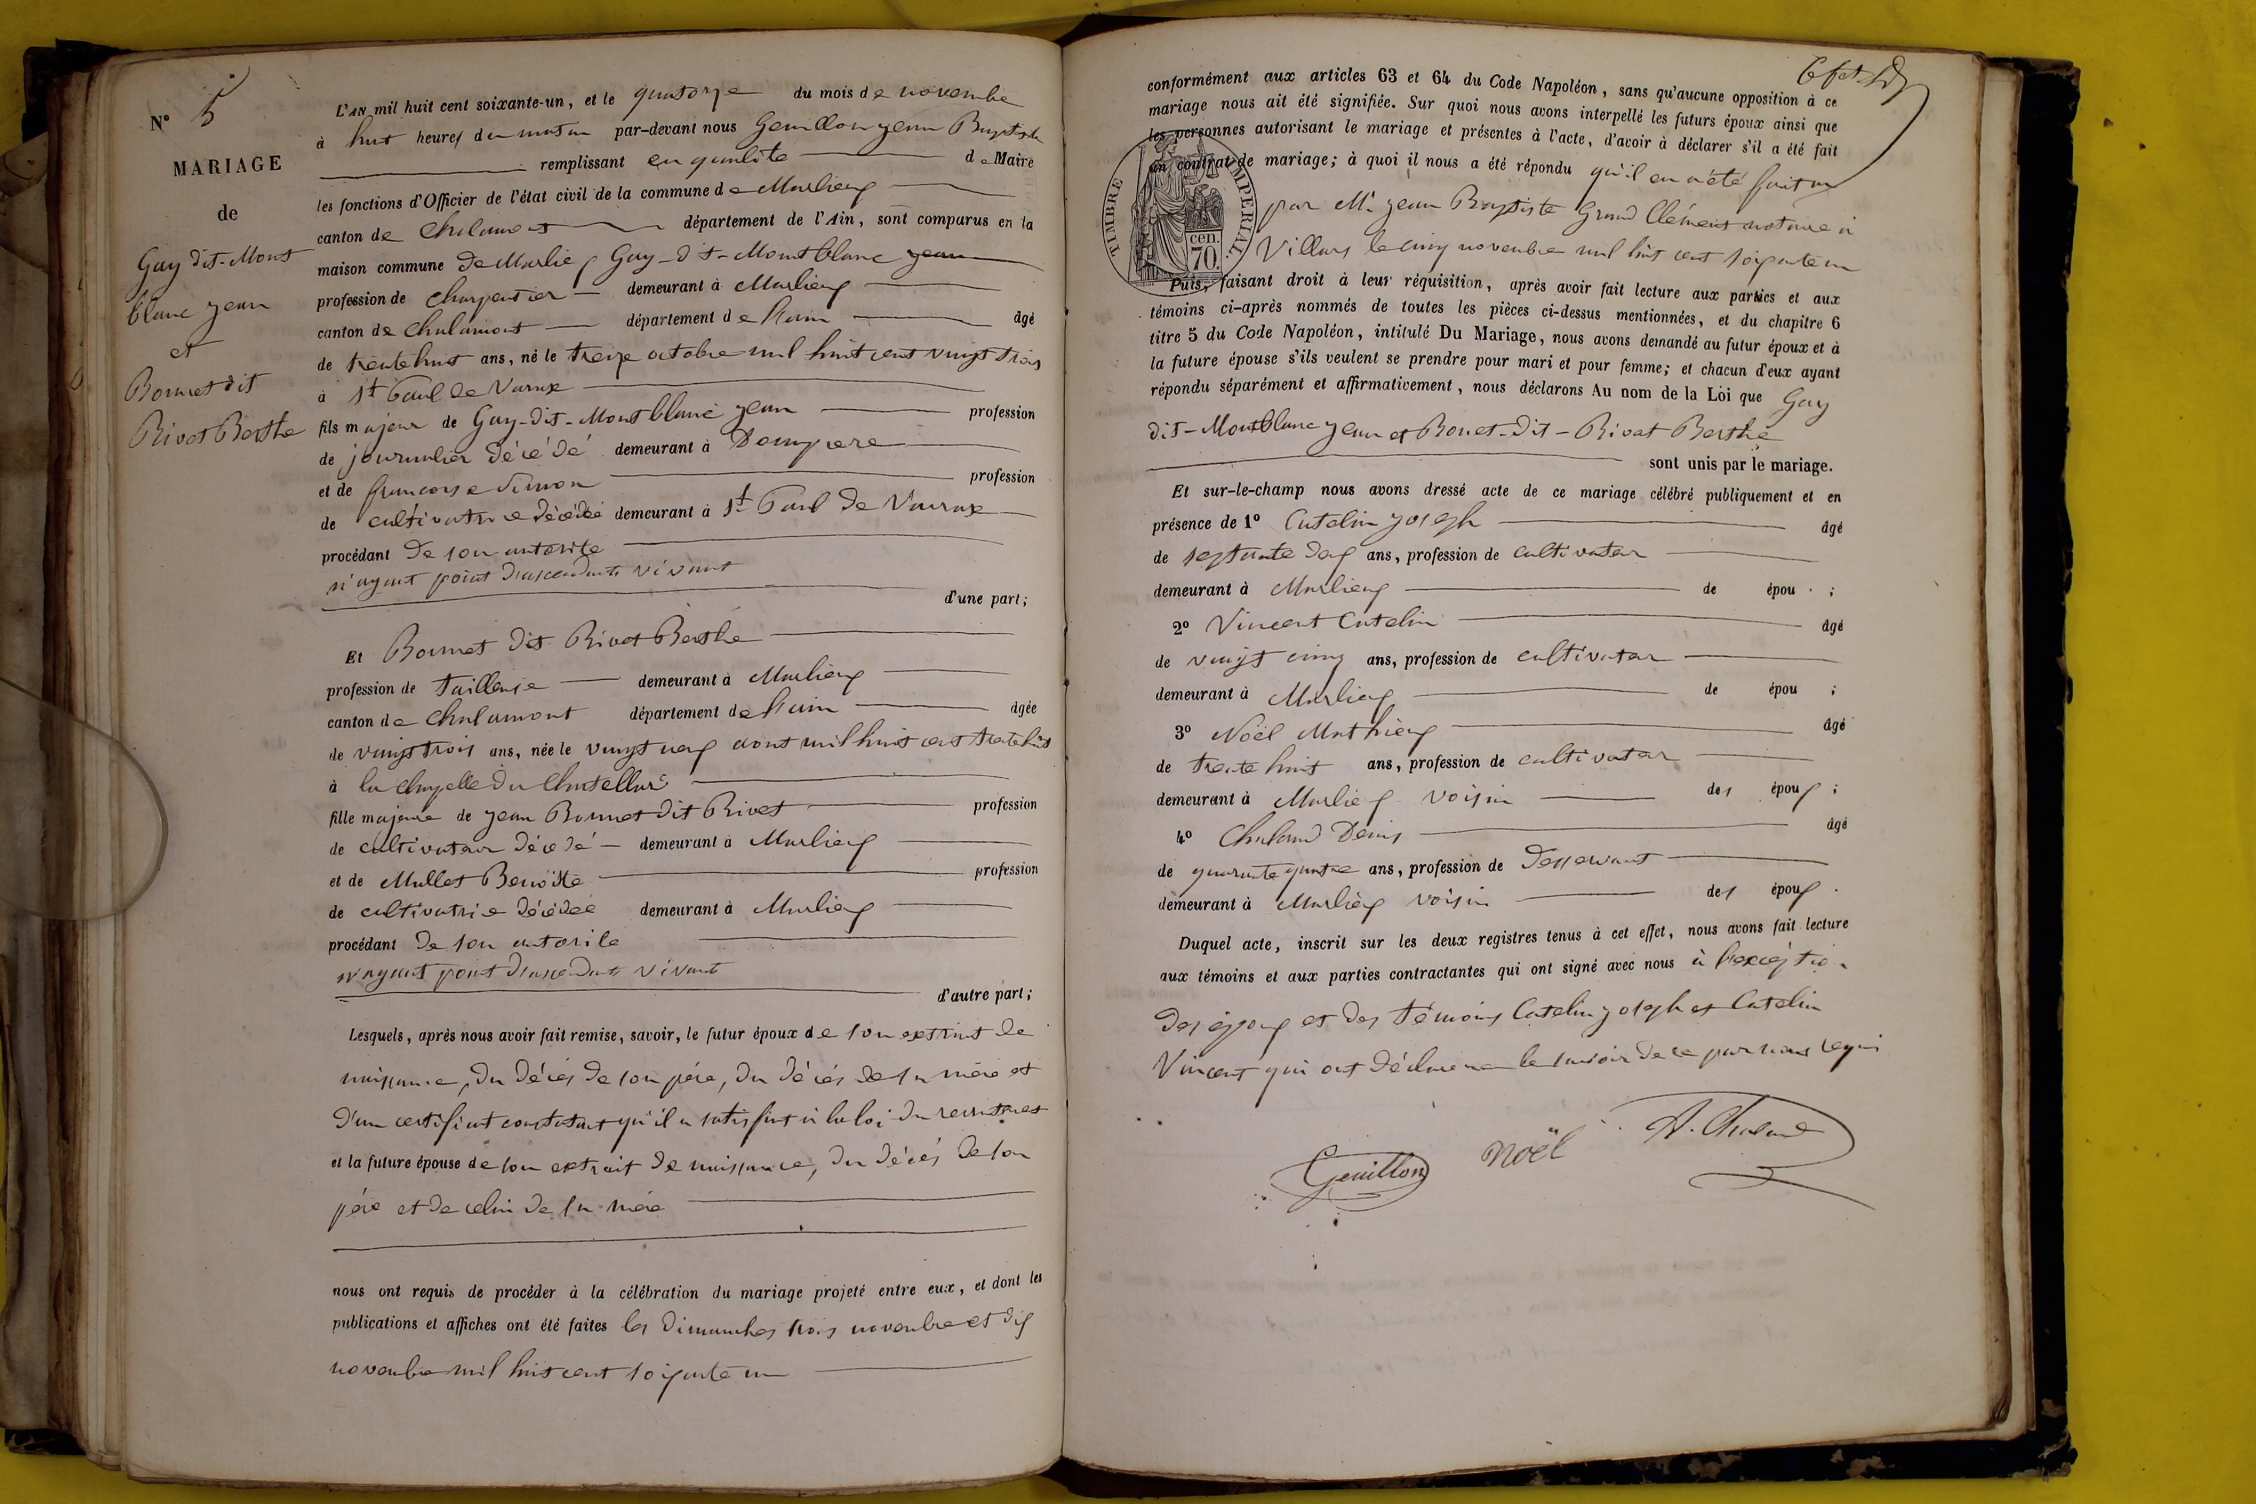 N° 5
MARIAGE
de
Guy dit-Mont
blanc jean
et
Bonnet dit
Rivet Berthe
L'AN mil huit cent soixante-un, et le quatorze du mois de novembre
à huit heures du matin par-devant nous Genillon jean Baptiste
remplissant en qualité de Maire
les fonctions d'Officier de l'état civil de la commune de Marlieux
canton de Chalamont département de l'Ain, sont comparus en la
maison commune de Marlieux Guy-dit-Montblanc jean
profession de charpentier demeurant à Marlieux
canton de Chalamont département de l'ain âgé
de trente huit ans, né le treize octobre mil huit cent vingt trois
à St Paul de Varax
fils majeur de Guy-dit-Montblanc jean profession
de journalier décédé demeurant à Dompierre
et de françoise Simon profession
de cultivatrice décédée demeurant à St Paul de Varax
procédant de son autorité
n'ayant point d'ascendants vivant
d'une part;
Et Bonnet dit Rivet Berthe
profession de tailleuse demeurant à Marlieux
canton de Chalamont département de l'ain âgée
de vingt trois ans, née le vingt neuf aout mil huit cent trente huit
à la chapelle du Chatellard
fille majeure de jean Bonnet dit Rivet profession
de cultivateur décédé demeurant à Marlieux
et de Mullet Benoite profession
de cultivatrice décédée demeurant à Marlieux
procédant de son autorité
n'ayant point d'ascendants vivant
d'autre part;
Lesquels, après nous avoir fait remise, savoir, le futur époux de son extrait de
naissance, du décès de son père, du décès de sa mère et
d'un certificat constatant qu'il a satisfait à la loi du recrutement
et la future épouse de son extrait de naissance, du décès de son
père et de celui de sa mère
nous ont requis de procéder à la célébration du mariage projeté entre eux, et dont les
publications et affiches ont été faites les dimanches trois novembre et dix
novembre mil huit cent soixante un
conformément aux articles 63 et 64 du Code Napoléon, sans qu'aucune opposition à ce
mariage nous ait été signifiée. Sur quoi nous avons interpellé les futurs époux ainsi que
les personnes autorisant le mariage et présentes à l'acte, d'avoir à déclarer s'il a été fait
un contrat de mariage; à quoi il nous a été répondu qu'il en a été fait un
par Mr jean Baptiste Grand Clément notaire à
Villars le cinq novembre mil huit cent soixante un
TIMBRE IMPERIAL
cen.
70.
Puis, faisant droit à leur réquisition, après avoir fait lecture aux parties et aux
témoins ci-après nommés de toutes les pièces ci-dessus mentionnées, et du chapitre 6
titre 5 du Code Napoléon, intitulé Du Mariage, nous avons demandé au futur époux et à
la future épouse s'ils veulent se prendre pour mari et pour femme; et chacun d'eux ayant
répondu séparément et affirmativement, nous déclarons Au nom de la Loi que Guy
dit-Montblanc jean et Bonet-dit-Rivat Berthe
sont unis par le mariage.
Et sur-le-champ nous avons dressé acte de ce mariage célébré publiquement et en
présence de 1° Catelin joseph âgé
de septante deux ans, profession de cultivateur
demeurant à Marlieux de épou ;
2° Vincent Catelin âgé
de vingt cinq ans, profession de cultivateur
demeurant à Marlieux de épou ;
3° Noël Mathieu âgé
de trente huit ans, profession de cultivateur
demeurant à Marlieux voisin des époux ;
4° Chaland Denis âgé
de quarante quatre ans, profession de desservant
demeurant à Marlieux voisin des époux.
Duquel acte, inscrit sur les deux registres tenus à cet effet, nous avons fait lecture
aux témoins et aux parties contractantes qui ont signé avec nous à l'exception
des époux et des témoins Catelin joseph et Catelin
Vincent qui ont déclaré ne le savoir de ce par nous requis
Genillon Noël